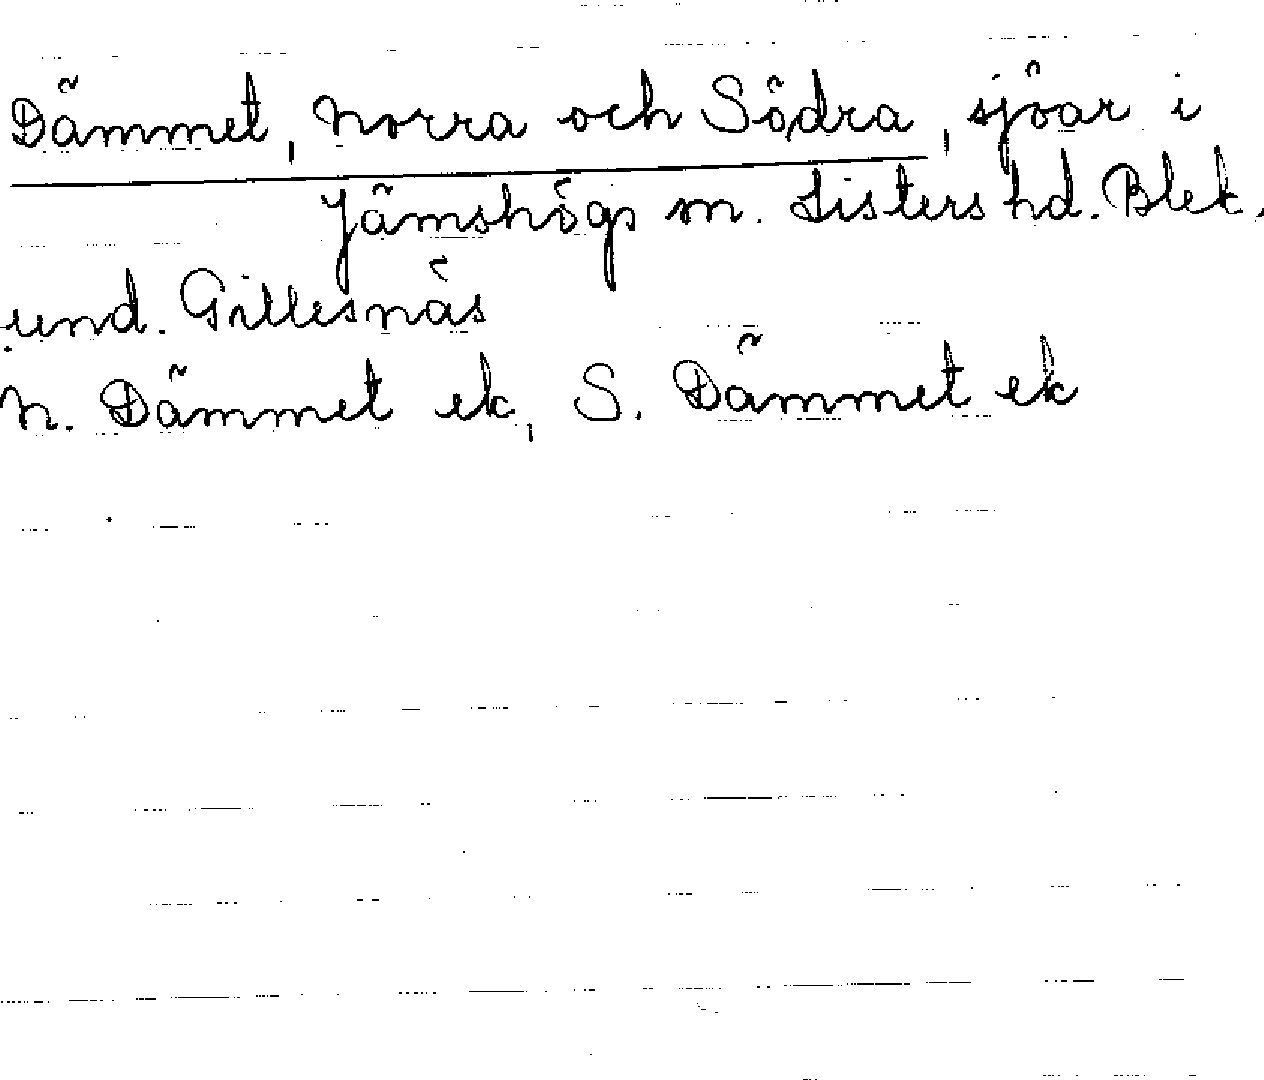 Dämmet, Norra och Södra, sjöar i
Jämshögs sn. Listers hd. Blek.
und. Gillesnäs
N. Dämmet ek, S. Dämmet ek